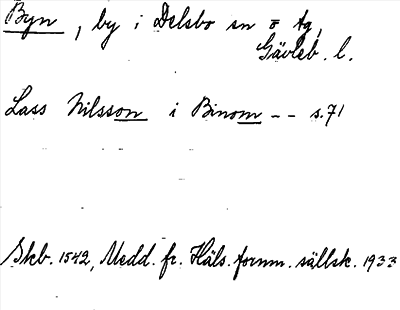 Byn, by i Delsbo sn o tg,
Gävleb. l.
Lass Nilsson i Binom -- s.71
Skb. 1542, Medd. fr. Häls. fornm. sällsk. 1933